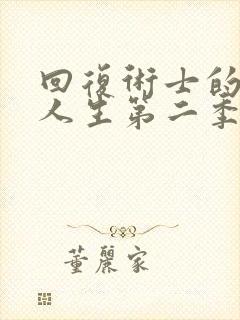 回復術士的
人生第二季
董麗家